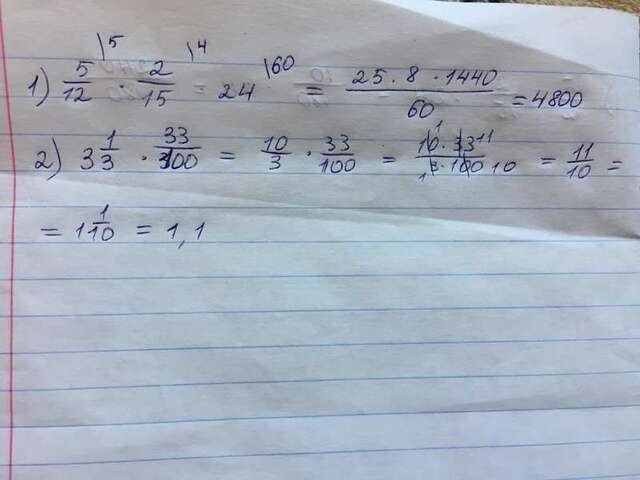 1) 5/12 \5 · 2/15 \4 = 24 \60 = 25 · 8 · 1440 / 60 = 4800
2) 3 1/3 · 33/100 = 10/3 · 33/100 = 10 1 · 33 11 / 3 1 · 100 10 = 11/10 =
= 1 1/10 = 1,1